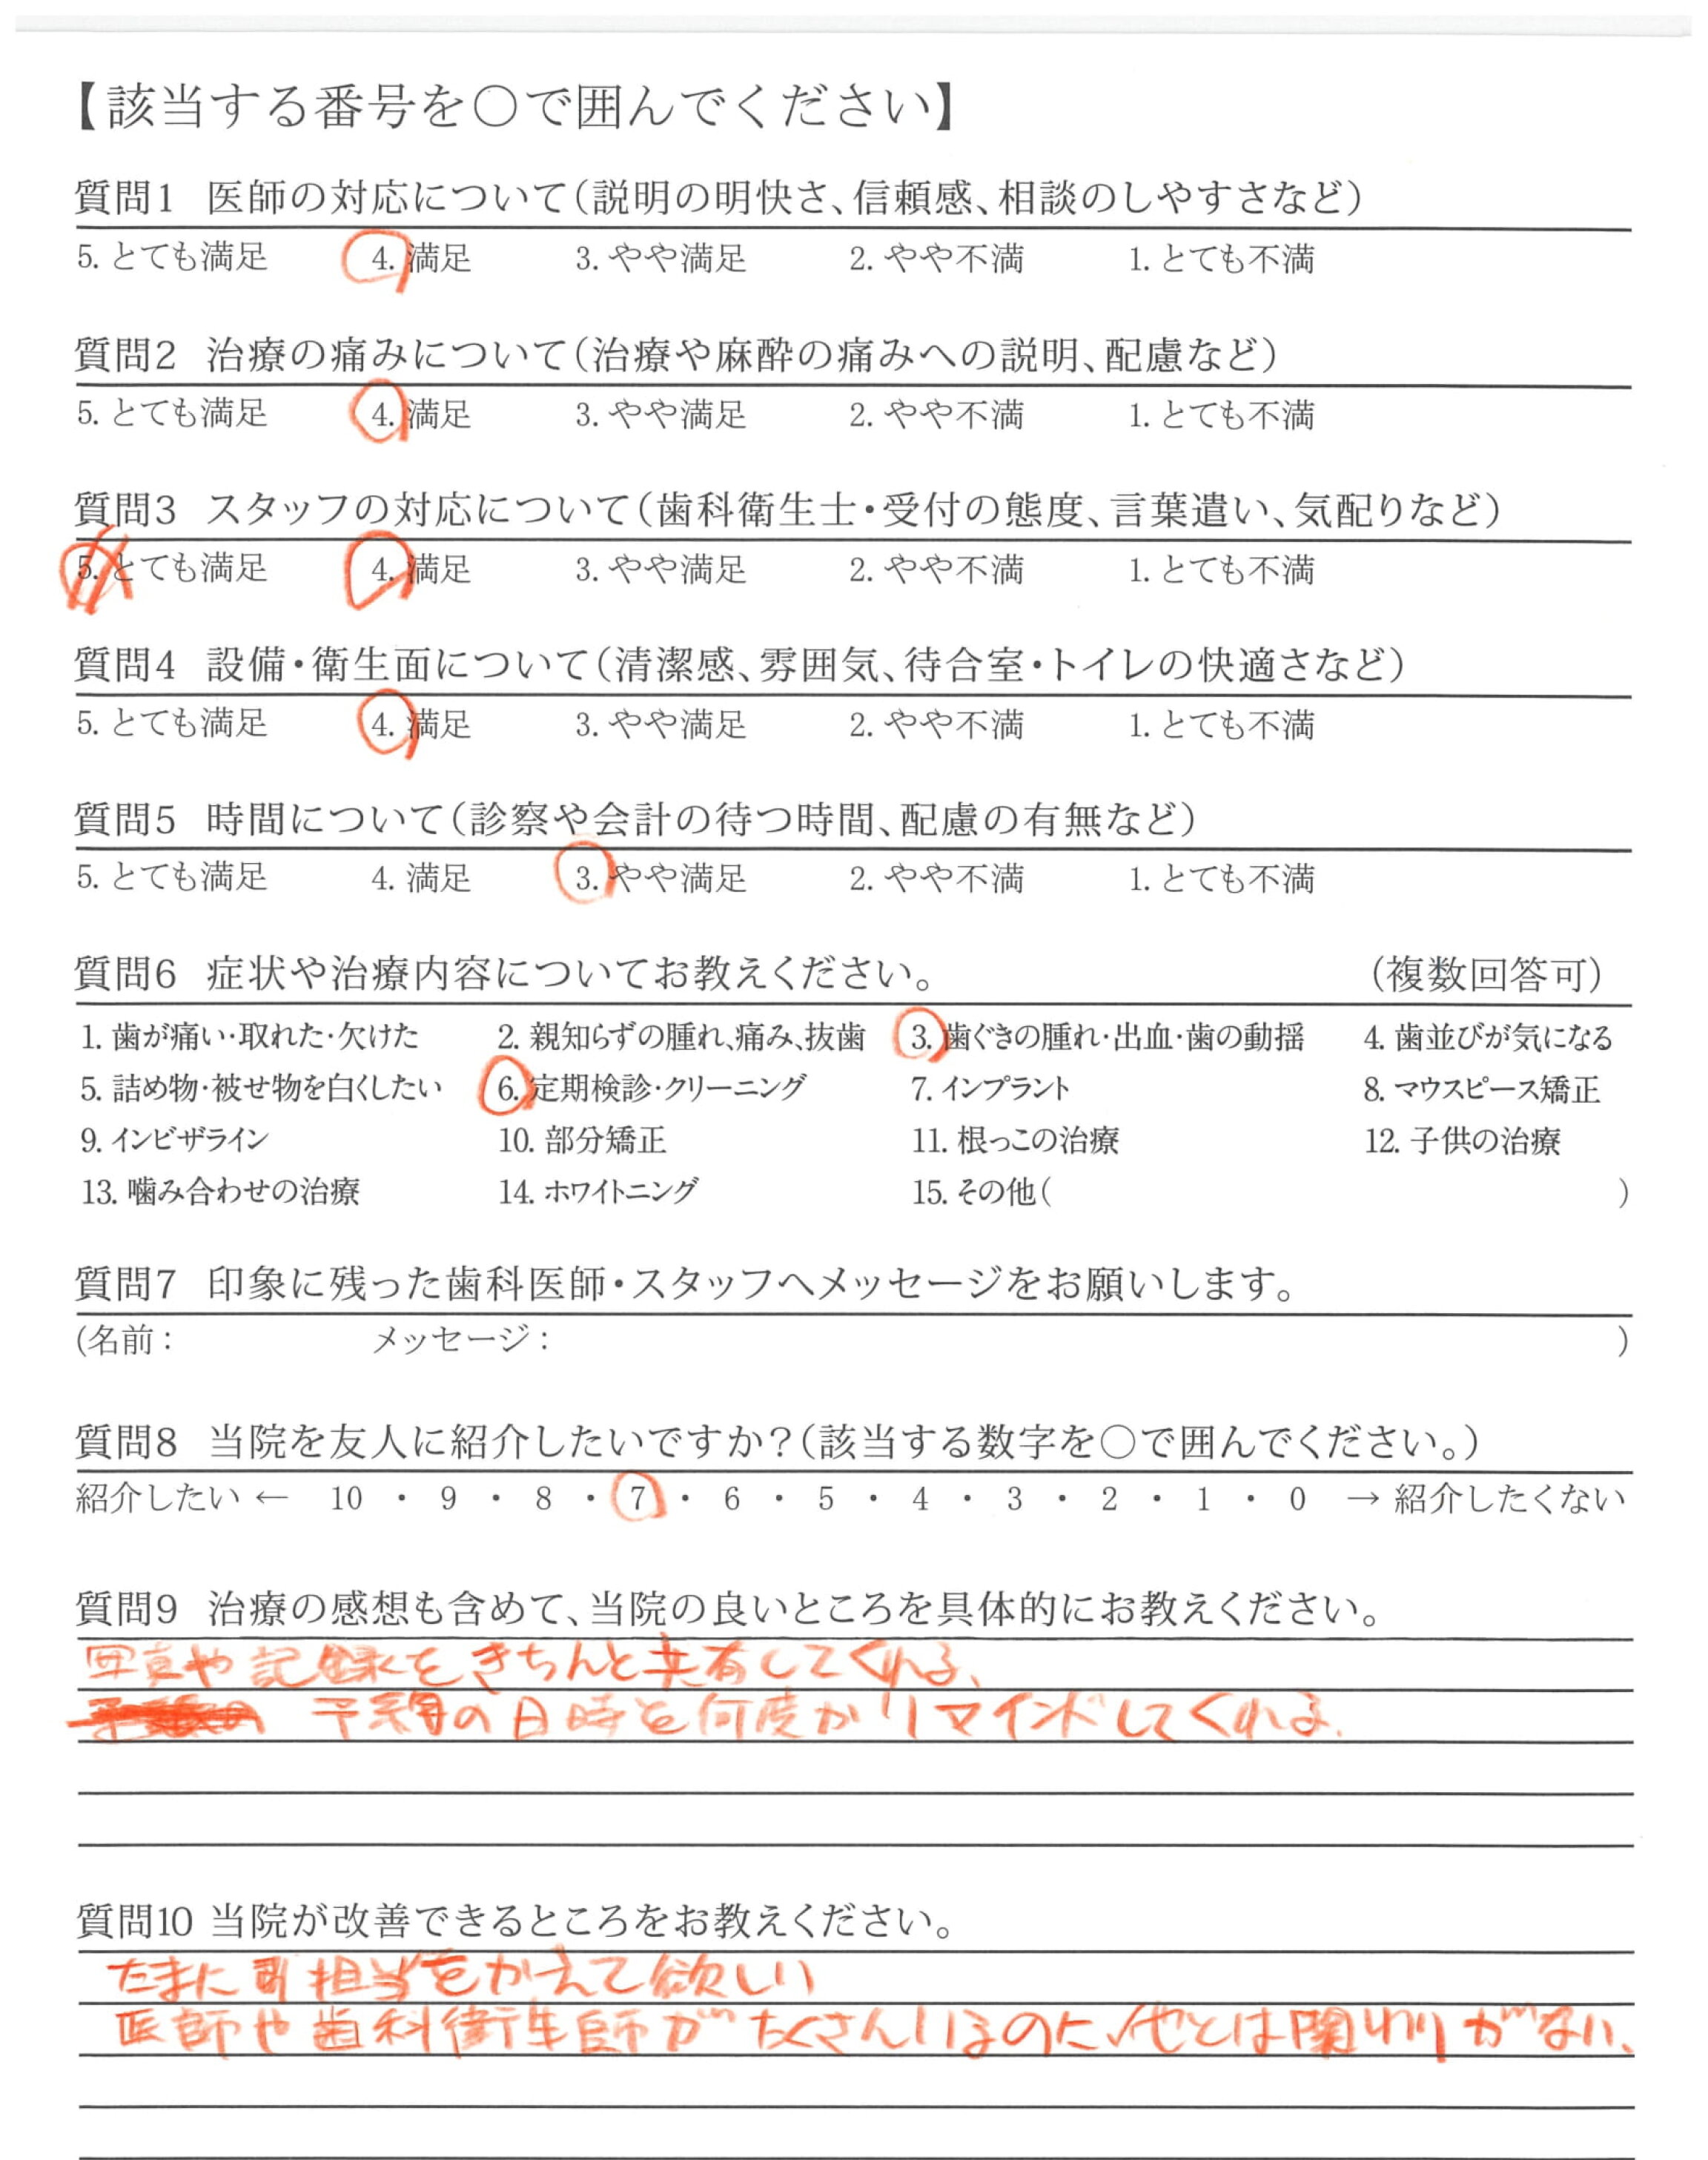 【該当する番号を○で囲んでください】
質問1 医師の対応について(説明の明快さ、信頼感、相談のしやすさなど)
5. とても満足 4. 満足 3. やや満足 2. やや不満 1. とても不満
質問2 治療の痛みについて(治療や麻酔の痛みへの説明、配慮など)
5. とても満足 4. 満足 3. やや満足 2. やや不満 1. とても不満
質問3 スタッフの対応について(歯科衛生士・受付の態度、言葉遣い、気配りなど)
5. とても満足 4. 満足 3. やや満足 2. やや不満 1. とても不満
質問4 設備・衛生面について(清潔感、雰囲気、待合室・トイレの快適さなど)
5. とても満足 4. 満足 3. やや満足 2. やや不満 1. とても不満
質問5 時間について(診察や会計の待つ時間、配慮の有無など)
5. とても満足 4. 満足 3. やや満足 2. やや不満 1. とても不満
質問6 症状や治療内容についてお教えください。 (複数回答可)
1. 歯が痛い・取れた・欠けた 2. 親知らずの腫れ、痛み、抜歯 3. 歯ぐきの腫れ・出血・歯の動揺 4. 歯並びが気になる
5. 詰め物・被せ物を白くしたい 6. 定期検診・クリーニング 7. インプラント 8. マウスピース矯正
9. インビザライン 10. 部分矯正 11. 根っこの治療 12. 子供の治療
13. 噛み合わせの治療 14. ホワイトニング 15. その他( )
質問7 印象に残った歯科医師・スタッフへメッセージをお願いします。
(名前: メッセージ: )
質問8 当院を友人に紹介したいですか?(該当する数字を○で囲んでください。)
紹介したい ← 10 ・ 9 ・ 8 ・ 7 ・ 6 ・ 5 ・ 4 ・ 3 ・ 2 ・ 1 ・ 0 → 紹介したくない
質問9 治療の感想も含めて、当院の良いところを具体的にお教えください。
写真や記録をきちんと共有してくれる、
予約の日時を何度かリマインドしてくれる.
質問10 当院が改善できるところをお教えください。
たまに担当をかえて欲しい
医師や歯科衛生師がたくさんいるのに、他とは関わりがない、